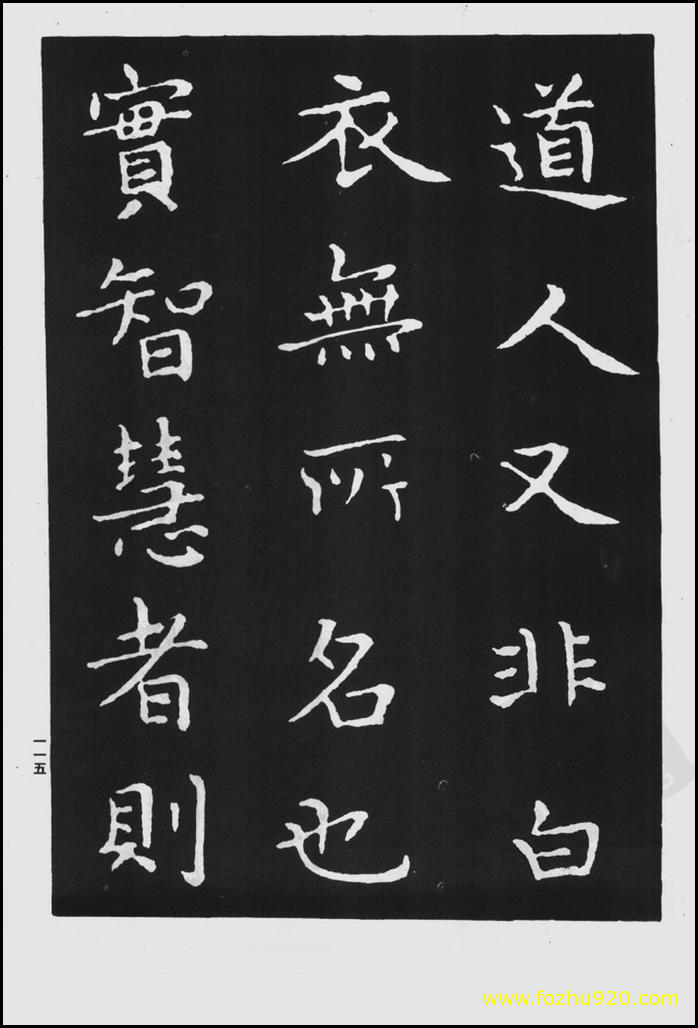 道人又非白
衣無所名也
實智慧者則
一一五
www.fozhu920.com